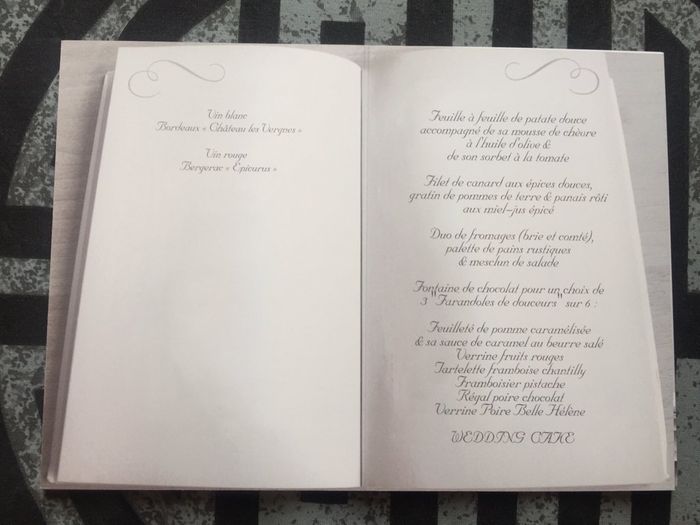 Vin blanc
Bordeaux « Château les Vergnes »
Vin rouge
Bergerac « Epicurus »
Feuille à feuille de patate douce
accompagné de sa mousse de chèvre
à l'huile d'olive &
de son sorbet à la tomate
Filet de canard aux épices douces,
gratin de pommes de terre & panais rôti
aux miel-jus épicé
Duo de fromages (brie et comté),
palette de pains rustiques
& mesclun de salade
Fontaine de chocolat pour un choix de
3 "Farandoles de douceurs" sur 6 :
Feuilleté de pomme caramélisée
& sa sauce de caramel au beurre salé
Verrine fruits rouges
Tartelette framboise chantilly
Framboisier pistache
Régal poire chocolat
Verrine Poire Belle Hélène
WEDDING CAKE